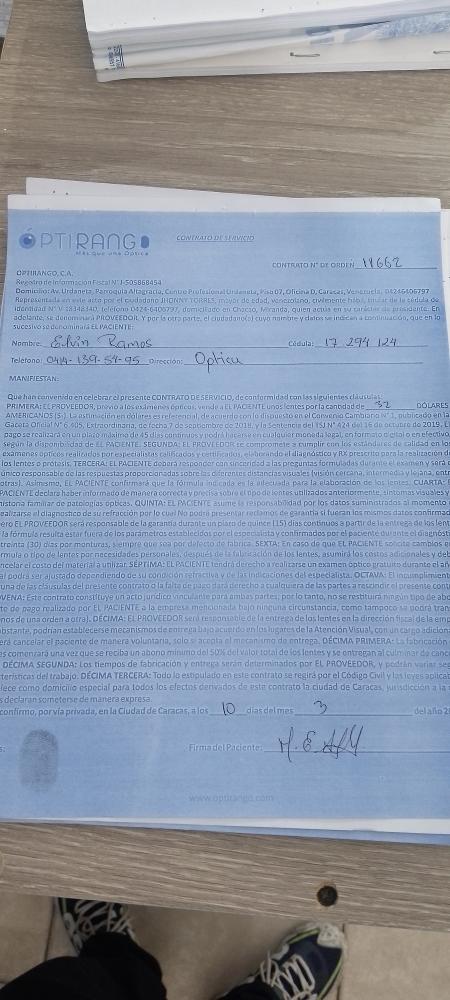 ÓPTIRANGO
Más que una Óptica
CONTRATO DE SERVICIO
CONTRATO N° DE ORDEN 11662
OPTIRANGO, C.A.
Registro de Información Fiscal N° J-505868454
Domicilio: Av. Urdaneta, Parroquia Altagracia, Centro Profesional Urdaneta, Piso 07, Oficina D, Caracas, Venezuela, 0246406797
Representada en este acto por el ciudadano JHONNY TORRES, mayor de edad, venezolano, civilmente hábil, titular de la cédula de
Identidad N° V-18348340, teléfono 0424-6406797, domiciliado en Chacao, Miranda, quien actúa en su carácter de presidente. En
adelante, se denominará PROVEEDOR. Y por la otra parte, el ciudadano(a) cuyo nombre y datos se indican a continuación, que en lo
sucesivo se denominará EL PACIENTE:
Nombre: Elvin Ramos Cédula: 17 294 124
Teléfono: 0414-139-54-95 Dirección: Optica
MANIFIESTAN:
Que han convenido en celebrar el presente CONTRATO DE SERVICIO, de conformidad con las siguientes cláusulas:
PRIMERA: EL PROVEEDOR, previo a los exámenes ópticos, vende a EL PACIENTE unos lentes por la cantidad de 32 DÓLARES
AMERICANOS ($-). La estimación en dólares es referencial, de acuerdo con lo dispuesto en el Convenio Cambiario N° 1, publicado en la
Gaceta Oficial N° 6.405, Extraordinario, de fecha 7 de septiembre de 2018, y la Sentencia del TSJ N° 424 del 16 de octubre de 2019. El
pago se realizará en un plazo máximo de 45 días continuos y podrá hacerse en cualquier moneda legal, en formato digital o en efectivo
según la disponibilidad de EL PACIENTE. SEGUNDA: EL PROVEEDOR se compromete a cumplir con los estándares de calidad en los
exámenes ópticos realizados por especialistas calificados y certificados, elaborando el diagnóstico y RX para la realización de
los lentes o prótesis. TERCERA: EL PACIENTE deberá responder con sinceridad a las preguntas formuladas durante el examen y será
único responsable de las respuestas proporcionadas sobre las diferentes distancias visuales (visión cercana, intermedia y lejana, entre
otras). Asimismo, EL PACIENTE confirmará que la fórmula indicada es la adecuada para la elaboración de los lentes. CUARTA:
PACIENTE declara haber informado de manera correcta y precisa sobre el tipo de lentes utilizados anteriormente, síntomas visuales y
historia familiar de patologías ópticas. QUINTA: EL PACIENTE asume la responsabilidad por los datos suministrados al momento
realizarse el diagnóstico por lo cual No podrá presentar reclamos de garantía si fueran los mismos datos
ero EL PROVEEDOR será responsable de la garantía durante un lapso de quince (15) días continuos a partir de la entrega de los
la fórmula resulta estar fuera de los parámetros establecidos por el especialista y confirmados por el paciente durante el
treinta (30) días por monturas, siempre que sea por defecto de fábrica. SEXTA: En caso de que EL PACIENTE solicite cambios
rmula o tipo de lentes por necesidades personales, después de la fabricación de los lentes, asumirá los costos adicionales y
ncelar el costo del material a utilizar. SÉPTIMA: EL PACIENTE tendrá derecho a realizarse un examen óptico gratuito durante el
al podrá ser ajustado dependiendo de su condición refractiva y de las indicaciones del especialista. OCTAVA: El incumplimiento
una de las cláusulas del presente contrato o la falta de pago dará derecho a cualquiera de las partes a rescindir el presente
VENA: Este contrato constituye un acto jurídico vinculante para ambas partes; por lo tanto, no se restituirá ningún tipo de
te de pago realizado por EL PACIENTE a la empresa mencionada bajo ninguna circunstancia, como tampoco se podrá
nos de una orden a otra). DÉCIMA: EL PROVEEDOR será responsable de la entrega de los lentes en la dirección fiscal de la
bstante, podrían establecerse mecanismos de entrega bajo acuerdo en los lugares de la Atención Visual, con un cargo
erá cancelar el paciente de manera voluntaria, solo si acepta el mecanismo de entrega. DÉCIMA PRIMERA: La fabricación
es comenzará una vez que se reciba un abono mínimo del 50% del valor total de los lentes y se entregan al culminar de
DÉCIMA SEGUNDA: Los tiempos de fabricación y entrega serán determinados por EL PROVEEDOR, y podrán variar
terísticas del trabajo. DÉCIMA TERCERA: Todo lo estipulado en este contrato se regirá por el Código Civil y las leyes
lece como domicilio especial para todos los efectos derivados de este contrato la ciudad de Caracas, jurisdicción a la
s declaran someterse de manera expresa.
confirmo, por vía privada, en la Ciudad de Caracas, a los 10 días del mes 3 del año
Firma del Paciente:
www.optirango.com